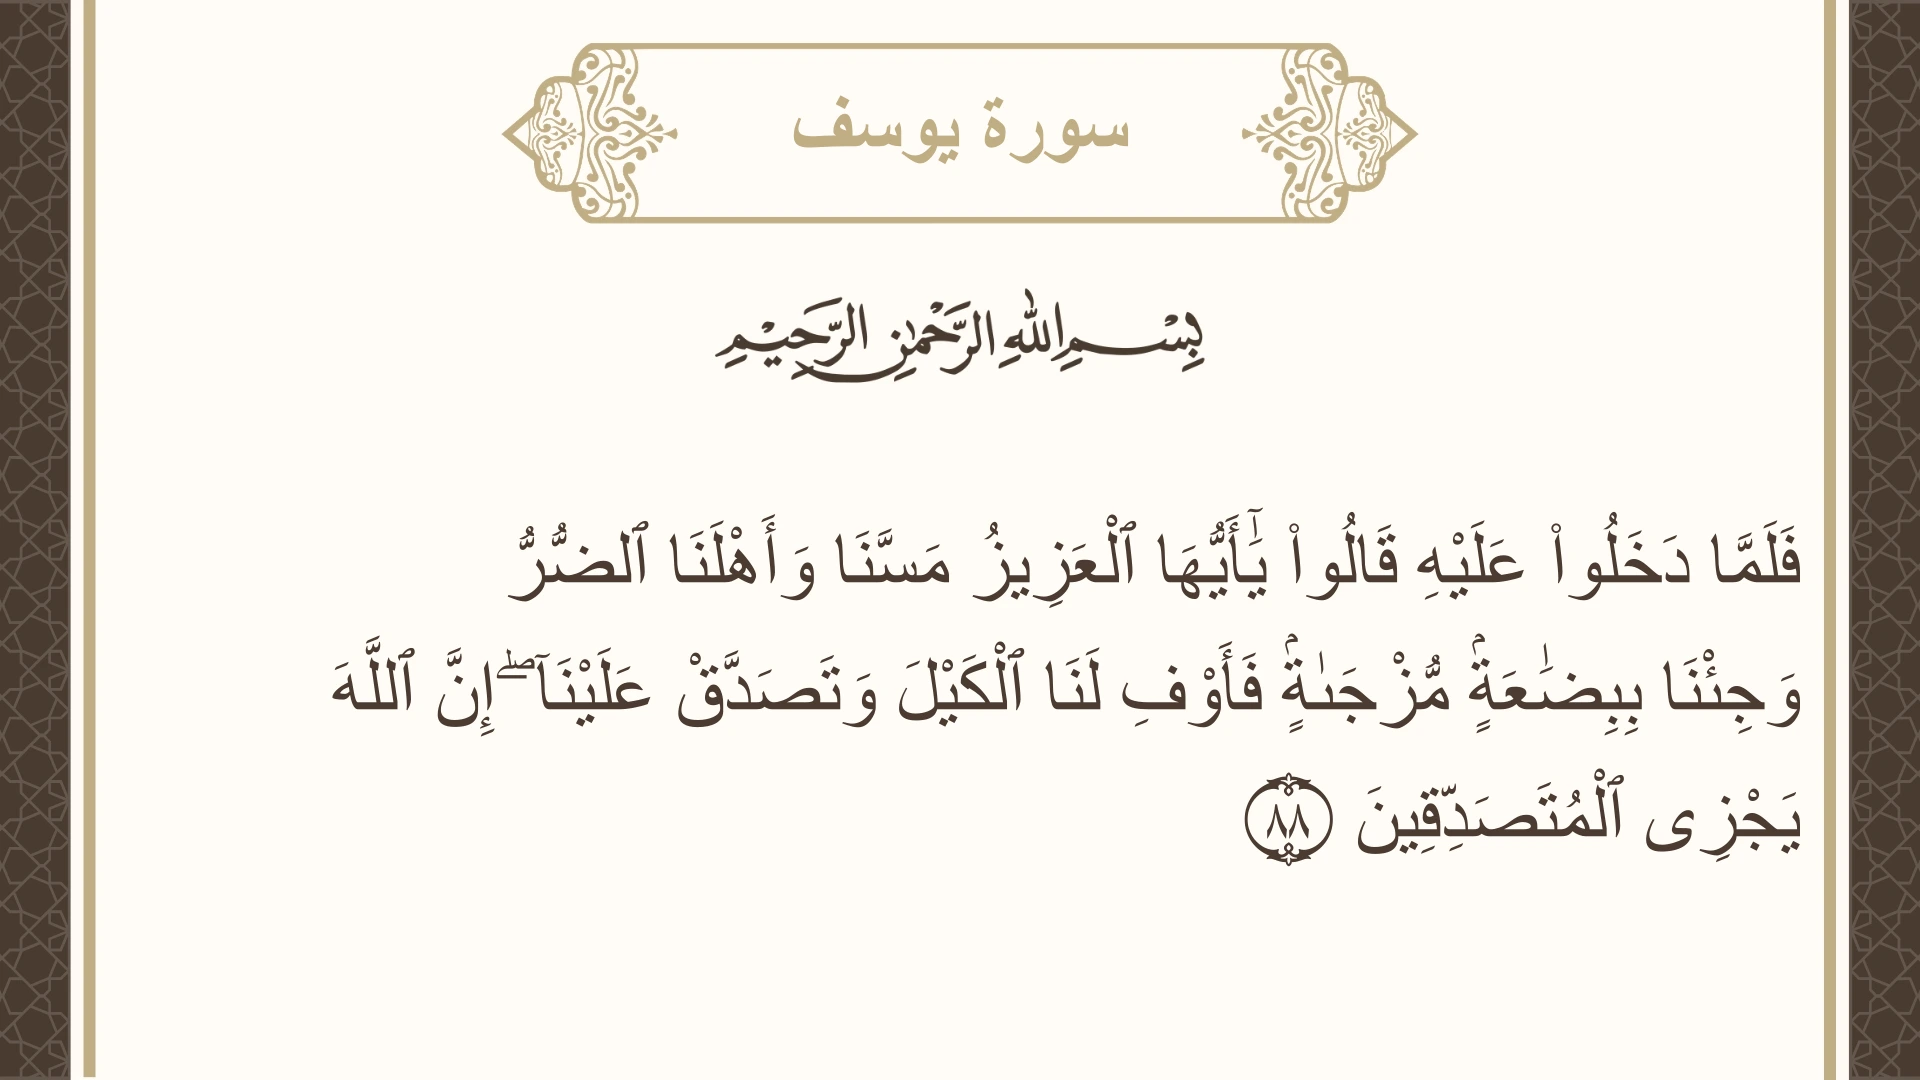 سورة يوسف
بِسْمِ اللهِ الرَّحْمٰنِ الرَّحِيْمِ
فَلَمَّا دَخَلُوا۟ عَلَيْهِ قَالُوا۟ يَـٰٓأَيُّهَا ٱلْعَزِيزُ مَسَّنَا وَأَهْلَنَا ٱلضُّرُّ
وَجِئْنَا بِبِضَـٰعَةٍۢ مُّزْجَىٰةٍۢ فَأَوْفِ لَنَا ٱلْكَيْلَ وَتَصَدَّقْ عَلَيْنَآ ۖ إِنَّ ٱللَّهَ
يَجْزِى ٱلْمُتَصَدِّقِينَ ٨٨